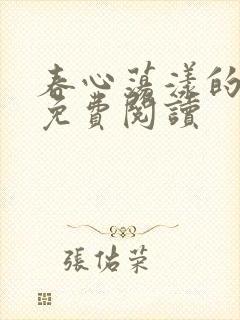 春心蕩漾的
免費閱讀
張佑荣